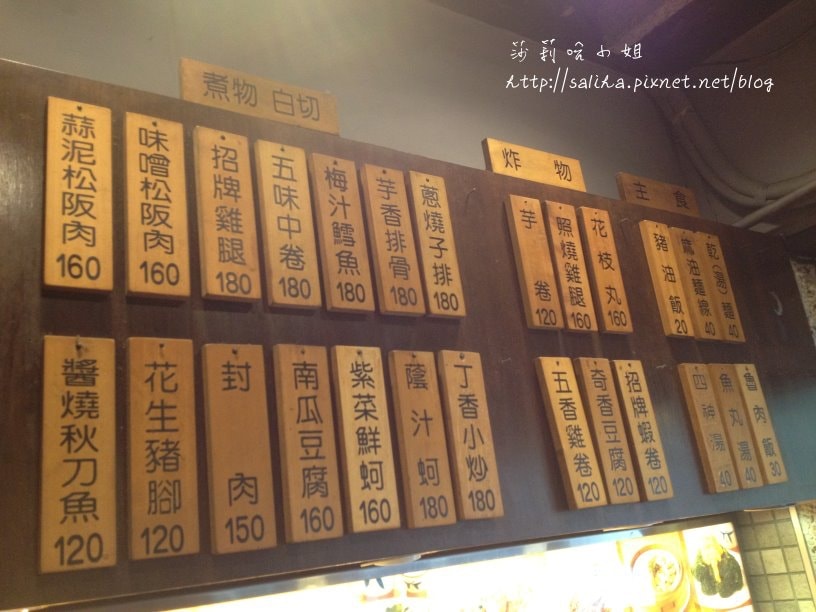 莎莉哈小姐
http://saliha.pixnet.net/blog
煮物 白切
蒜泥松阪肉 160
味噌松阪肉 160
招牌雞腿 180
五味中卷 180
梅汁鱈魚 180
芋香排骨 180
蔥燒子排 180
醬燒秋刀魚 120
花生豬腳 120
封肉 150
南瓜豆腐 160
紫菜鮮蚵 160
蔭汁蚵 180
丁香小炒 180
炸物
芋卷 120
照燒雞腿 160
花枝丸 160
五香雞卷 120
奇香豆腐 120
招牌蝦卷 120
主食
豬油飯 20
麻油麵線 40
乾(湯)麵 40
四神湯 40
魚丸湯 40
魯肉飯 30